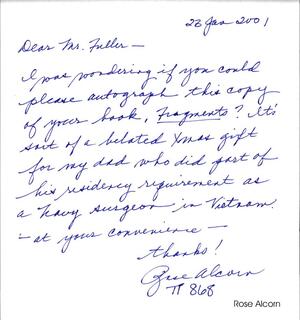 23 Jan 2001
Dear Mr. Fuller —
I was wondering if you could
please autograph this copy
of your book, Fragments? It's
sort of a belated Xmas gift
for my dad who did part of
his residency requirement as
a Navy surgeon in Vietnam.
— at your convenience —
thanks!
Rose Alcorn
TP 868
Rose Alcorn